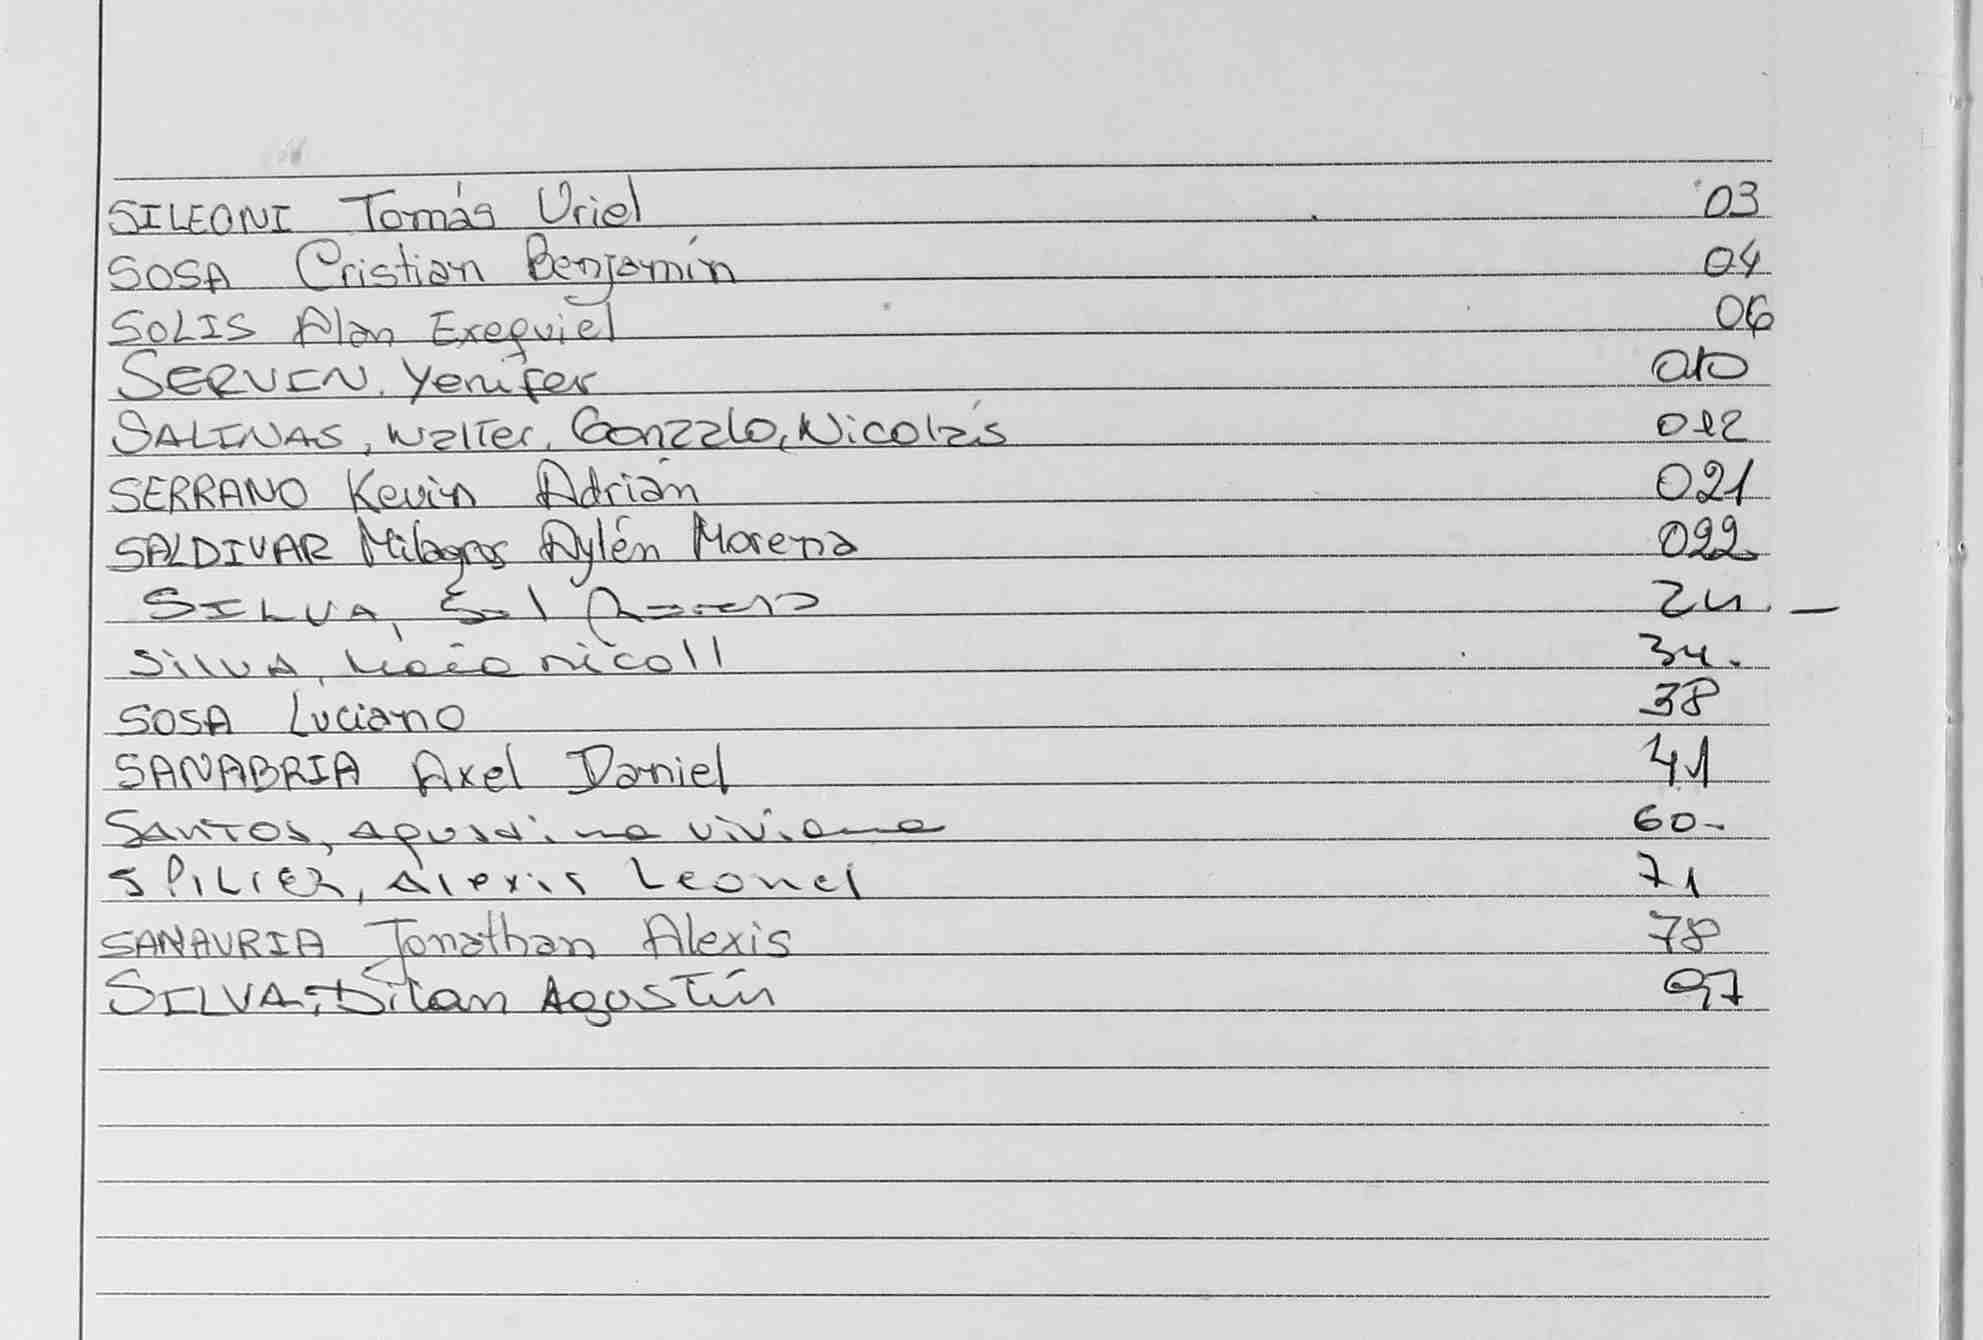 SILEONI Tomás Uriel 03
SOSA Cristian Benjamín 04
SOLIS Alan Exequiel 06
SERVIN. Yenifer 010
SALINAS, Walter, Gonzalo, Nicolás 012
SERRANO Kevin Adrián 021
SALDIVAR Milagros Aylén Morena 022
SILVA, 24. –
SILVA, nicoll 34.
SOSA Luciano 38
SANABRIA Axel Daniel 41
SANTOS, Agustina Viviana 60-
SPILIER, Alexis Leonel 71
SANAURIA Jonathan Alexis 78
SILVA, Dilan Agustín 97